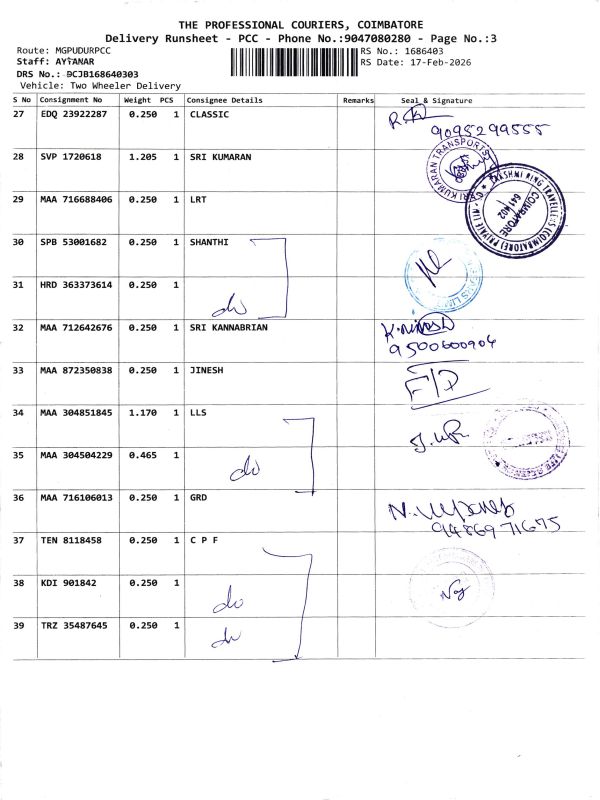 THE PROFESSIONAL COURIERS, COIMBATORE
Delivery Runsheet - PCC - Phone No.:9047080280 - Page No.:3
Route: MGPUDURPCC RS No.: 1686403
Staff: AYYANAR RS Date: 17-Feb-2026
DRS No.: DCJB168640303
Vehicle: Two Wheeler Delivery
S No Consignment No Weight PCS Consignee Details Remarks Seal & Signature
27 EDQ 23922287 0.250 1 CLASSIC
9095299555
28 SVP 1720618 1.205 1 SRI KUMARAN
SRI KUMARAN TRANSPORTS
29 MAA 716688406 0.250 1 LRT
COIMBATORE
641402
30 SPB 53001682 0.250 1 SHANTHI
31 HRD 363373614 0.250 1
do
32 MAA 712642676 0.250 1 SRI KANNABRIAN
9500600904
33 MAA 872350838 0.250 1 JINESH
F/D
34 MAA 304851845 1.170 1 LLS
35 MAA 304504229 0.465 1
do
36 MAA 716106013 0.250 1 GRD
9486971675
37 TEN 8118458 0.250 1 C P F
38 KDI 901842 0.250 1
do
39 TRZ 35487645 0.250 1
do